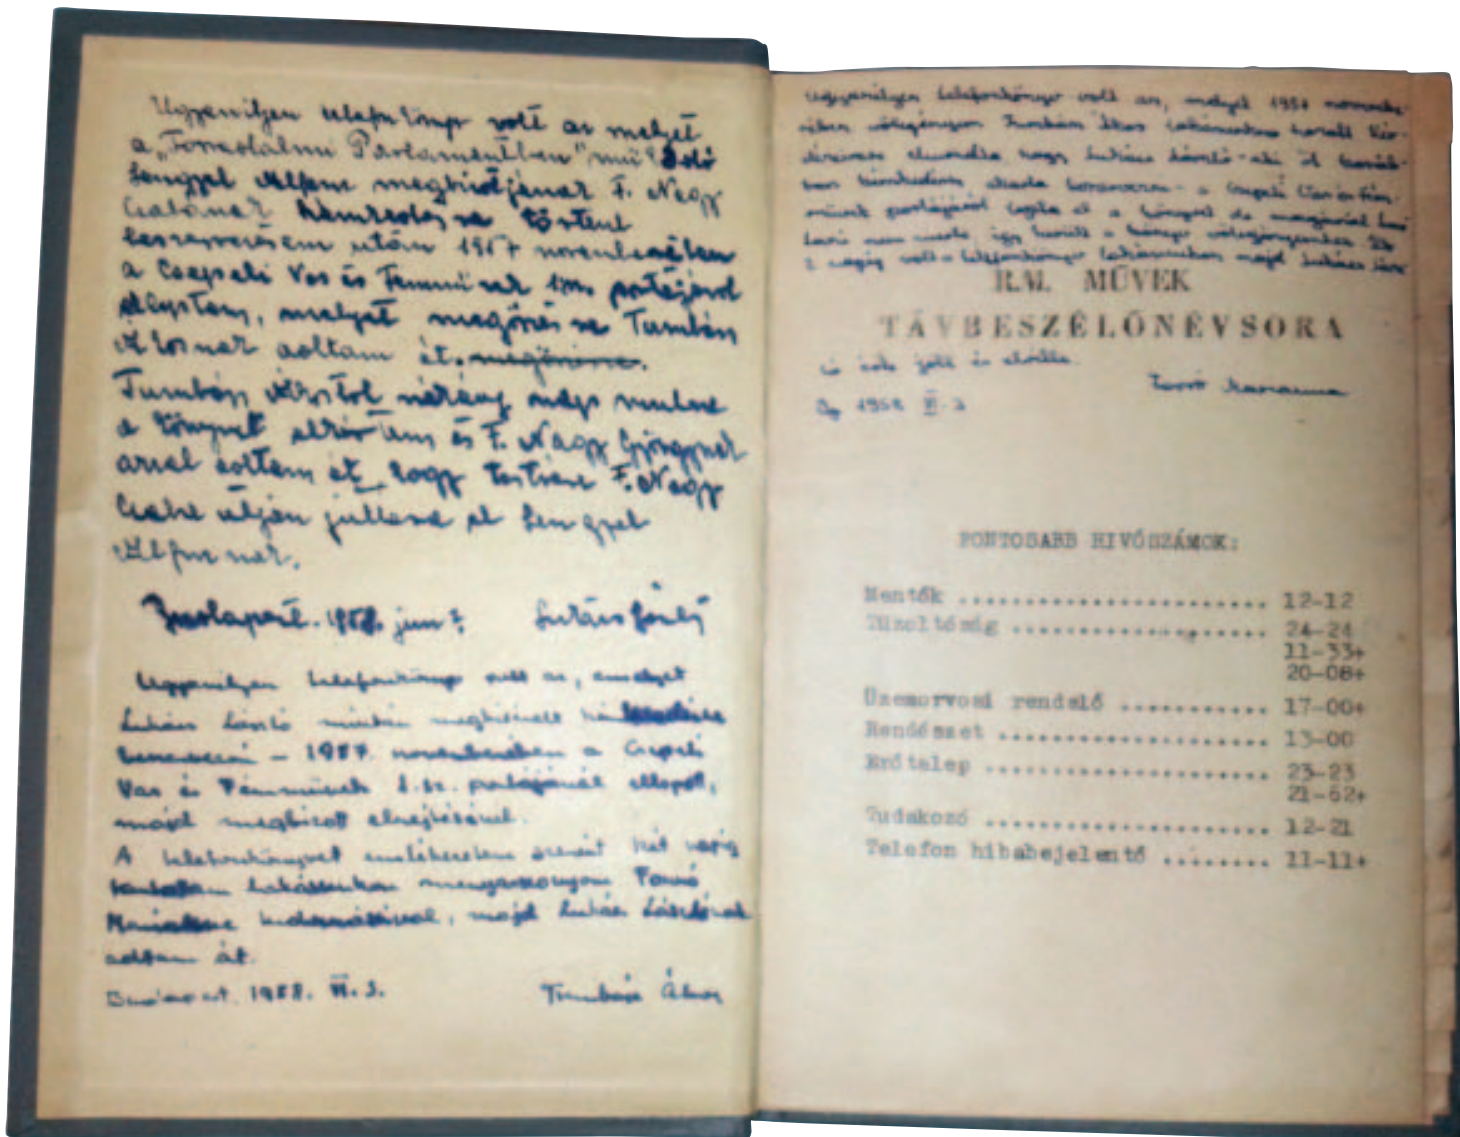 Ugyanilyen telefonkönyv volt az melyet
a „Forradalmi Parlamentben" működő
Lengyel megbízotjának F. Nagy
Csabának történt
beszervezésem után 1957 novemberében
a Csepeli Vas és Fémművek portájáról
elloptam, melyet megőrzésre Tumbász
Ákosnak adtam át. megőrzésre.
Tumbász Ákostól néhány nap mulva
a könyvet elkértem és F. Nagy Györgynek
azzal adtam át, hogy F. Nagy
Csaba útján juttassa el Lengyel
Budapest. 1958. jun 3. Lukács László
Ugyanilyen telefonkönyv volt az, amelyet
Lukács László miután megbízását
– 1957. novemberében a Csepeli
Vas és Fémművek 1.sz. portájánál ellopott,
majd megbízott elrejtésével.
A telefonkönyvet emlékezetem szerint két napig
tartottam lakásunkon menyasszonyom
tudomásával, majd Lukács Lászlónak
adtam át.
Budapest. 1958. VI. 3. Tumbász Ákos
Ugyanilyen telefonkönyv volt az, melyet 1957 novembe-
rében vőlegényem Tumbász Ákos lakásunkon
elmondta hogy Lukács László – aki őt
a Csepeli Vas és Fém-
művek portájáról lopta el a könyvet de magánál
tartani nem merte így került a könyv vőlegényemhez.
2 napig volt a telefonkönyv lakásunkon majd Lukács
R.M. MŰVEK
TÁVBESZÉLŐNÉVSORA
érte jött és elvitte.
Bp 1958 VI. 3
FONTOSABB HIVÓSZÁMOK:
Mentők ........................ 12-12
Tűzoltóság .................... 24-24
11-33+
20-08+
Üzemorvosi rendelő ........... 17-00+
Rendészet ..................... 13-00
Erőtelep ...................... 23-23
21-62+
Tudakozó ...................... 12-21
Telefon hibabejelentő ........ 11-11+